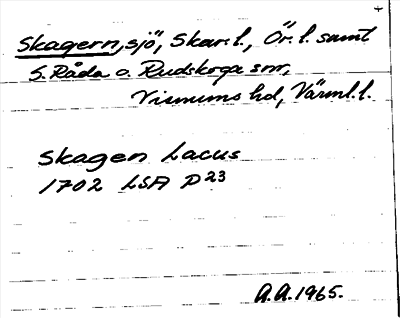 Skagern, sjö, Skar. l., Ör. l. samt
S. Råda o. Rudskoga snr,
Visnums hd, Värml. l.
Skagen Lacus
1702 LSA P23
A.A. 1965.